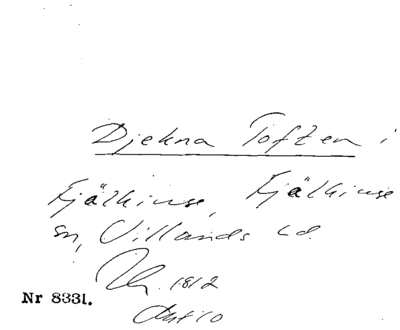 Djekna Toften i
Fjälkinge, Fjälkinge
sn, Villands hd.
1812
Nr 8331.